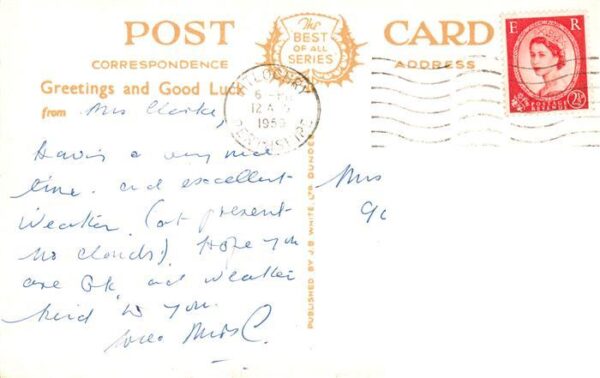 POST CARD
The
BEST
OF ALL
SERIES
CORRESPONDENCE
ADDRESS
Greetings and Good Luck
from Mrs Clarke,
Having a very nice
time. and excellent
weather. (at present
no clouds). Hope you
are Ok and weather
kind to you.
Mrs C.
PUBLISHED BY J.B. WHITE LTD DUNDEE
12 A
1959
PERTHSHIRE
E R
POSTAGE
REVENUE
2½
Mrs